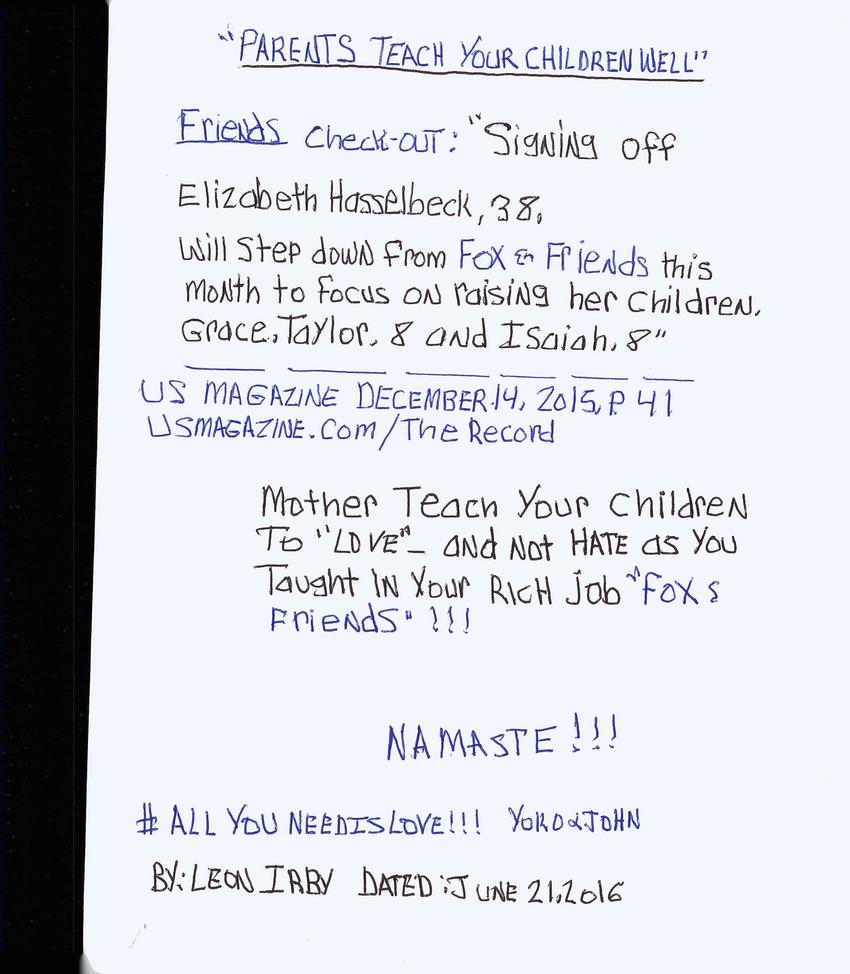 "PARENTS TEACH YOUR CHILDREN WELL"
Friends Check-out: "Signing off
Elizabeth Hasselbeck, 38,
Will Step down from Fox & Friends this
Month to Focus on raising her Children.
Grace, Taylor, 8 and Isaiah, 8"
US MAGAZINE DECEMBER.14, 2015, P 41
USMAGAZINE.Com/The Record
Mother Teach Your Children
To "LOVE"- and Not HATE as You
Taught IN Your RICH Job "Fox &
Friends" !!!
NAMASTE !!!
# ALL YOU NEEDISLOVE!!! YOKO & JOHN
BY: LEON IRBY DATED: JUNE 21, 2016